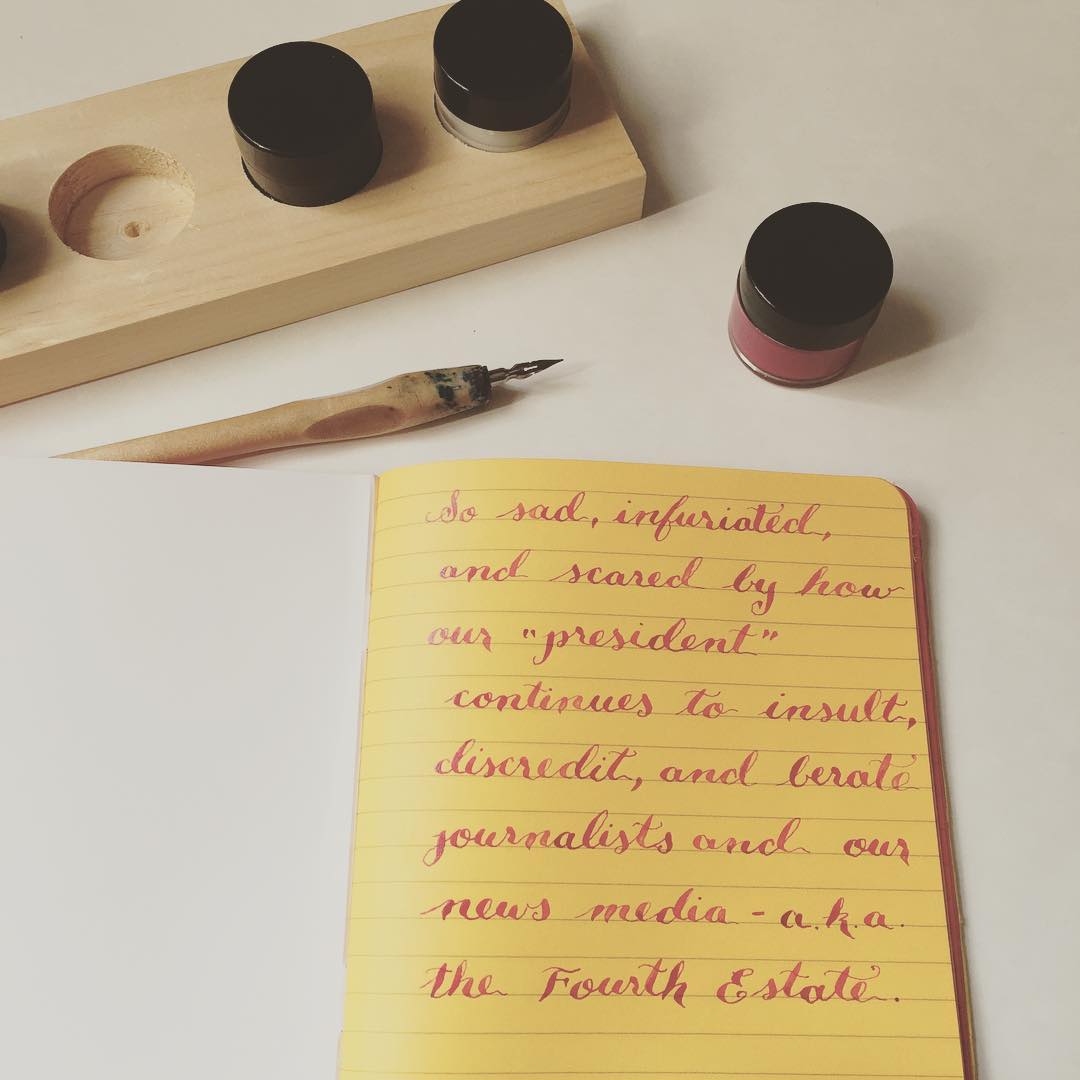 So sad, infuriated,
and scared by how
our "president"
continues to insult,
discredit, and berate
journalists and our
news media - a.k.a.
the Fourth Estate.